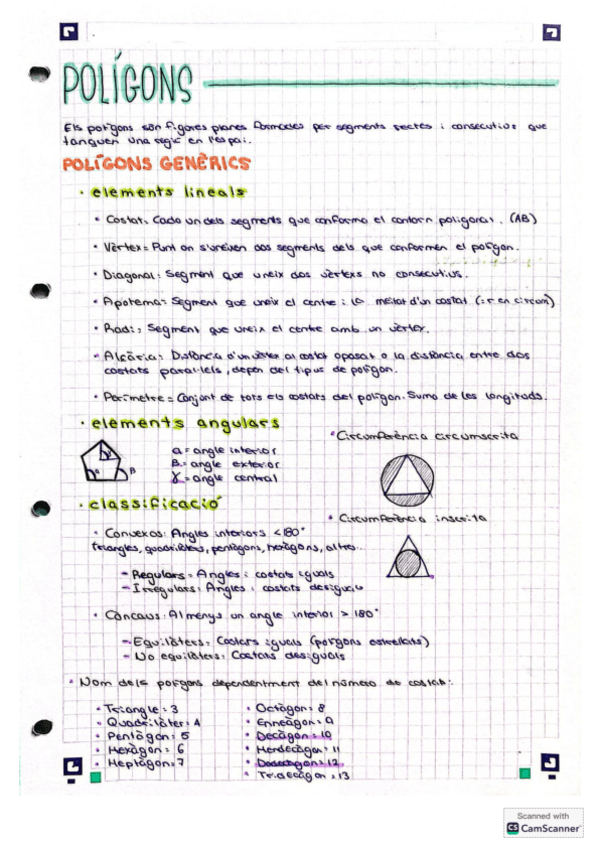 POLÍGONS
Els polígons són figures planes formades per segments rectes i consecutius que
tanquen una regió en l'espai.
POLÍGONS GENÈRICS
· elements lineals
• Costat: Cada un dels segments que conforma el contorn poligonal. (AB)
• Vèrtex = Punt on s'uneixen dos segments dels que conformen el polígon.
• Diagonal: Segment que uneix dos vèrtexs no consecutius.
• Apotema: Segment que uneix el centre i la meitat d'un costat (:r en circum)
• Radi: Segment que uneix el centre amb un vèrtex.
• Alçària: Distància d'un vèrtex al costat oposat o la distància entre dos
costats paral·lels, depèn del tipus de polígon.
• Perímetre = Conjunt de tots els costats del polígon. Suma de les longituds.
· elements angulars
α = angle interior
β = angle exterior
γ = angle central
B
• Circumferència circumscrita
· classificació
• Circumferència inscrita
• Convexos: Angles interiors <180°
triangles, quadrilàters, pentàgons, hexàgons, altres...
- Regulars = Angles i costats iguals
- Irregulars: Angles i costats desiguals
• Còncaus: Almenys un angle interior > 180°
- Equilàters: Costats iguals (polígons estrellats)
- No equilàters: Costats desiguals
• Nom dels polígons dependentment del número de costats:
• Triangle: 3
• Quadrilàter: 4
• Pentàgon: 5
• Hexàgon: 6
• Heptàgon: 7
• Octàgon: 8
• Enneàgon: 9
• Decàgon: 10
• Hendecàgon: 11
• Dodecàgon: 12
• Tridecàgon: 13
Scanned with
CS CamScanner